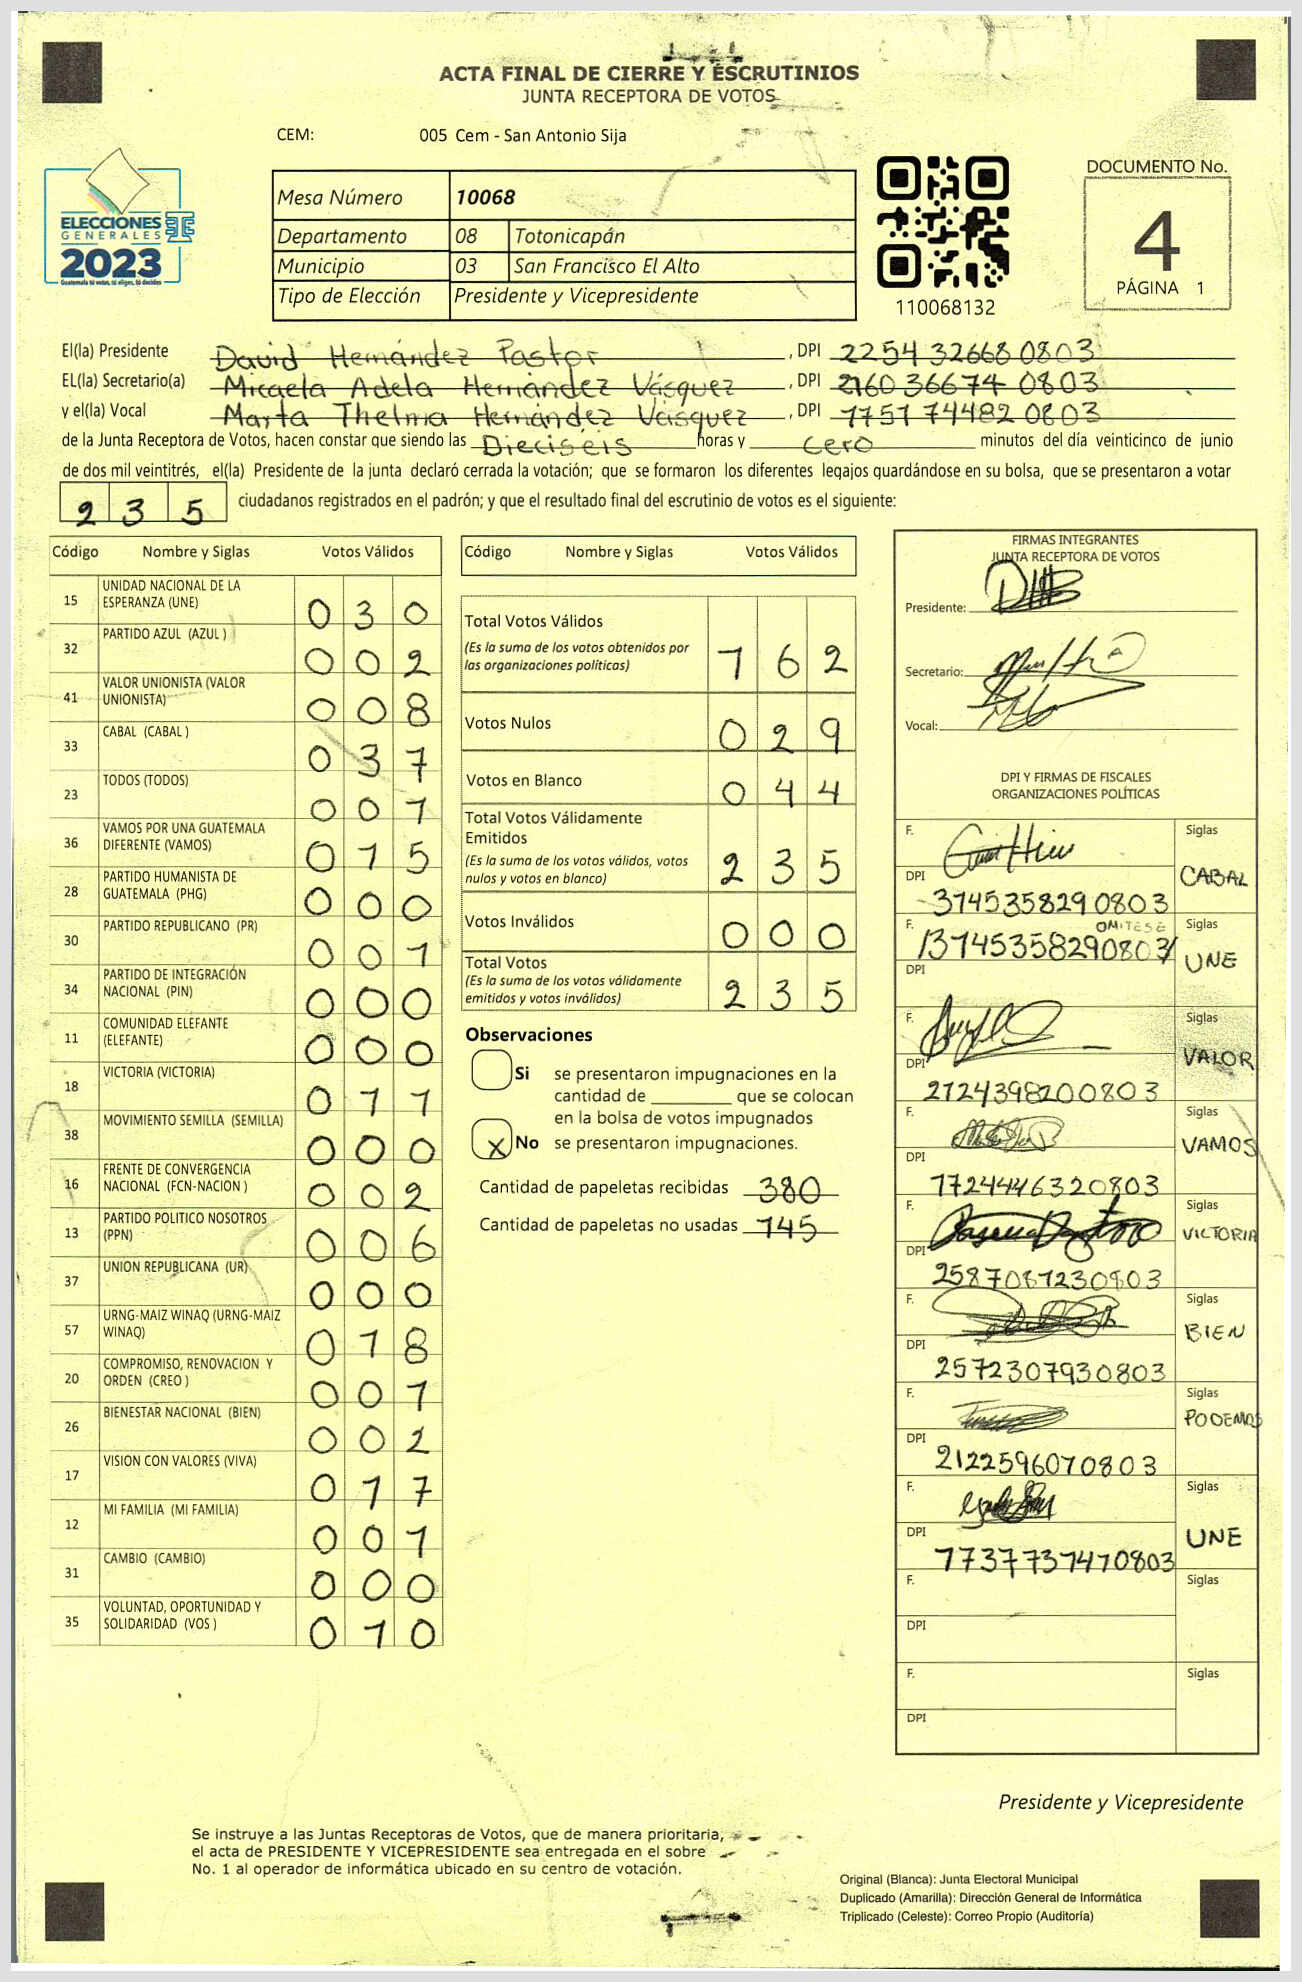 ACTA FINAL DE CIERRE Y ESCRUTINIOS
JUNTA RECEPTORA DE VOTOS
CEM: 005 Cem - San Antonio Sija
ELECCIONES
GENERALES
2023
Guatemala tú votas, tú eliges, tú decides
Mesa Número 10068
Departamento 08 Totonicapán
Municipio 03 San Francisco El Alto
Tipo de Elección Presidente y Vicepresidente
110068132
DOCUMENTO No.
4
PÁGINA 1
El(la) Presidente David Hernández Pastor, DPI 2254 32668 0803
EL(la) Secretario(a) Micaela Adela Hernández Vásquez, DPI 2160 36674 0803
y el(la) Vocal Marta Thelma Hernández Vásquez, DPI 1751 74482 0803
de la Junta Receptora de Votos, hacen constar que siendo las Dieciséis horas y cero minutos del día veinticinco de junio
de dos mil veintitrés, el(la) Presidente de la junta declaró cerrada la votación; que se formaron los diferentes legajos guardándose en su bolsa, que se presentaron a votar
235 ciudadanos registrados en el padrón; y que el resultado final del escrutinio de votos es el siguiente:
Código Nombre y Siglas Votos Válidos
15 UNIDAD NACIONAL DE LA ESPERANZA (UNE) 030
32 PARTIDO AZUL (AZUL ) 002
41 VALOR UNIONISTA (VALOR UNIONISTA) 008
33 CABAL (CABAL ) 037
23 TODOS (TODOS) 001
36 VAMOS POR UNA GUATEMALA DIFERENTE (VAMOS) 015
28 PARTIDO HUMANISTA DE GUATEMALA (PHG) 000
30 PARTIDO REPUBLICANO (PR) 001
34 PARTIDO DE INTEGRACIÓN NACIONAL (PIN) 000
11 COMUNIDAD ELEFANTE (ELEFANTE) 000
18 VICTORIA (VICTORIA) 011
38 MOVIMIENTO SEMILLA (SEMILLA) 000
16 FRENTE DE CONVERGENCIA NACIONAL (FCN-NACION ) 002
13 PARTIDO POLITICO NOSOTROS (PPN) 006
37 UNION REPUBLICANA (UR) 000
57 URNG-MAIZ WINAQ (URNG-MAIZ WINAQ) 018
20 COMPROMISO, RENOVACION Y ORDEN (CREO ) 001
26 BIENESTAR NACIONAL (BIEN) 002
17 VISION CON VALORES (VIVA) 017
12 MI FAMILIA (MI FAMILIA) 001
31 CAMBIO (CAMBIO) 000
35 VOLUNTAD, OPORTUNIDAD Y SOLIDARIDAD (VOS ) 010
Código Nombre y Siglas Votos Válidos
Total Votos Válidos 162
(Es la suma de los votos obtenidos por
las organizaciones politicas)
Votos Nulos 029
Votos en Blanco 044
Total Votos Válidamente
Emitidos 235
(Es la suma de los votos válidos, votos
nulos y votos en blanco)
Votos Inválidos 000
Total Votos 235
(Es la suma de los votos válidamente
emitidos y votos inválidos)
Observaciones
Si se presentaron impugnaciones en la
cantidad de ________ que se colocan
en la bolsa de votos impugnados
X No se presentaron impugnaciones.
Cantidad de papeletas recibidas 380
Cantidad de papeletas no usadas 145
FIRMAS INTEGRANTES
JUNTA RECEPTORA DE VOTOS
Presidente:
Secretario:
Vocal:
DPI Y FIRMAS DE FISCALES
ORGANIZACIONES POLÍTICAS
F. Siglas
DPI 3745358290803 CABAL
F. OMITESE Siglas
13745358290803/ UNE
DPI
F. Siglas
DPI 2124398200803 VALOR
F. Siglas
DPI 1724446320803 VAMOS
F. Siglas
DPI 2587087230803 VICTORIA
F. Siglas
DPI 2572307930803 BIEN
F. Siglas
DPI 2122596070803 PODEMOS
F. Siglas
DPI 1737737470803 UNE
F. Siglas
DPI
F. Siglas
DPI
Presidente y Vicepresidente
Se instruye a las Juntas Receptoras de Votos, que de manera prioritaria,
el acta de PRESIDENTE Y VICEPRESIDENTE sea entregada en el sobre
No. 1 al operador de informática ubicado en su centro de votación.
Original (Blanca): Junta Electoral Municipal
Duplicado (Amarilla): Dirección General de Informática
Triplicado (Celeste): Correo Propio (Auditoría)